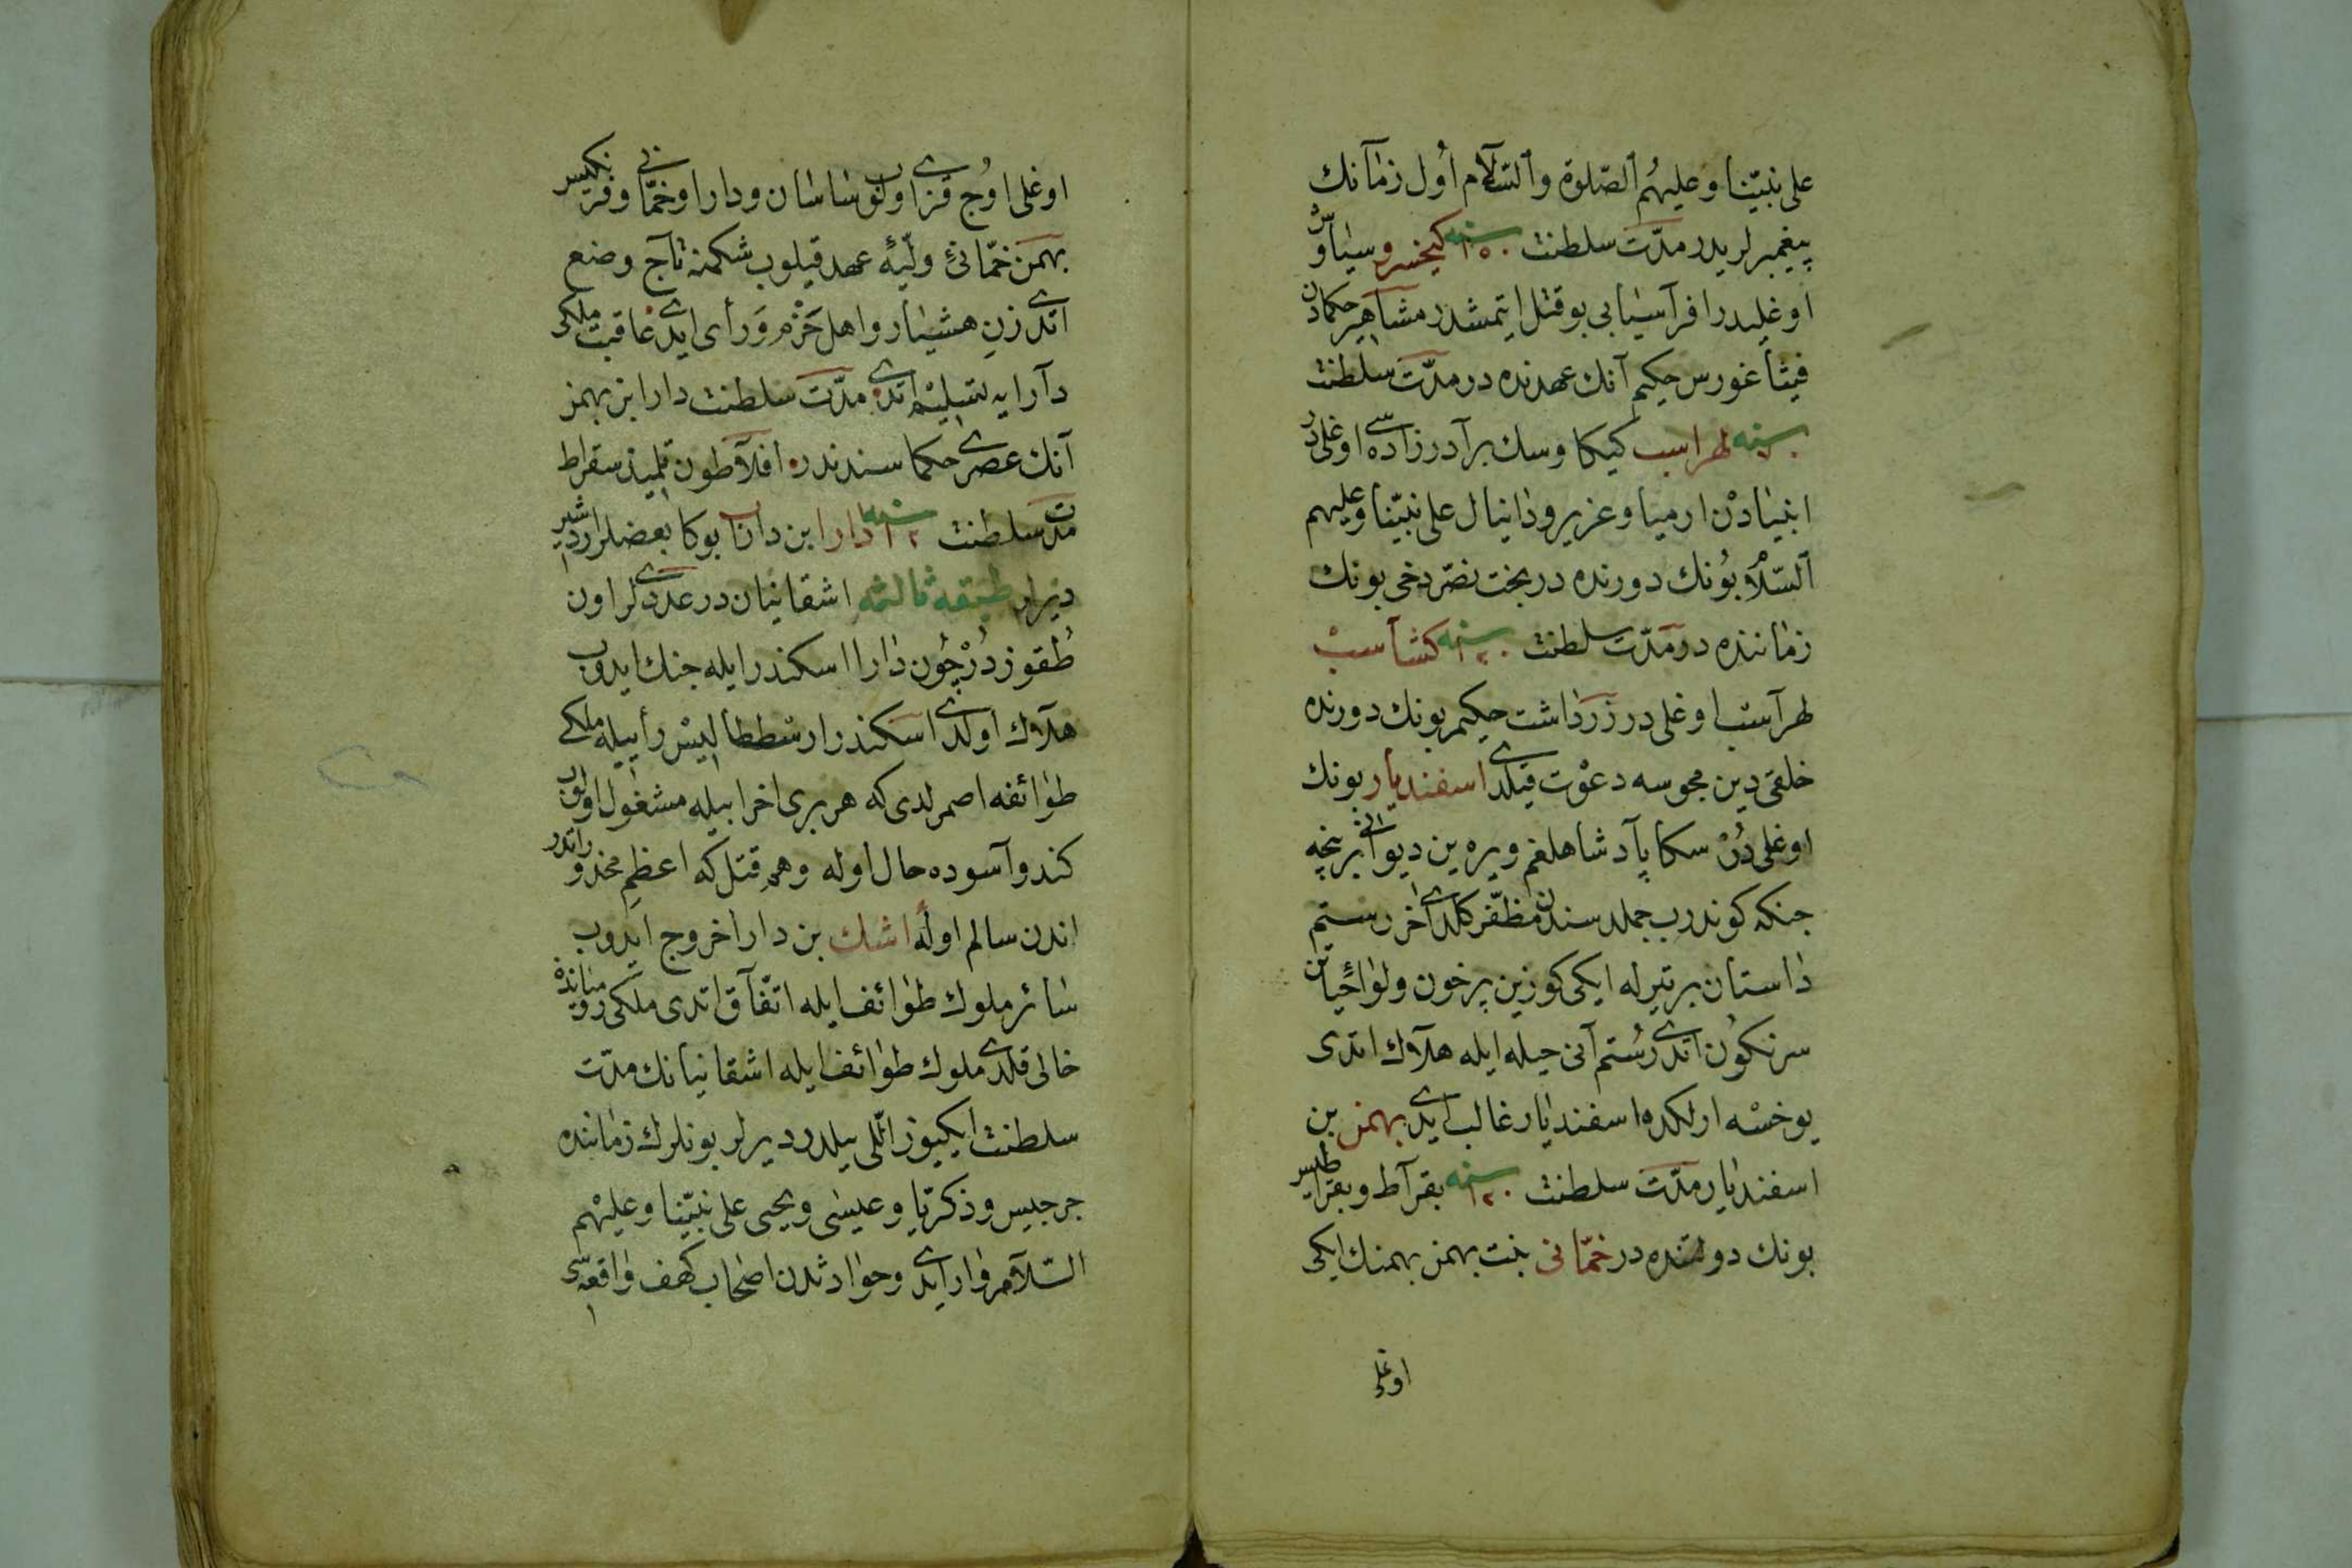 على نبيّنا و عليهُم ٱلصّلوة وٱلسّلآم اُول زمآنك
پيغمبرلريدر مدّت سلطنت سنه ١٥٠ كيخسرو سياوش
اوغليدر افرآسيابى بو قتل ايتمشدر مشآهير حكمادن
فيثاغورس حكيم آنك عهدنده در مدّت سلطنت
سنه لهراسب كيكاوسك برآدرزاده سى اوغلى در
انبيادن ارميا و عزير و دانيال على نبيّنا و عليهم
ٱلسّلام بُونك دورنده در بخت نصّر دخى بونك
زماننده در مدّت سلطنت سنه ١٢٠ كشتآسب
لهرآسب اوغلى در زرداشت حكيم بونك دورنده
خلقى دين مجوسه دعوت قيلدى اسفنديار بونك
اوغلى دُرْ سكا پآدشاهلغم ويره ين ديو انى برنچه
جنكه كوندرب جمله سندن مظفّر كلدى اخر رستم
داستان بر تيرله ايكى كوزين پرخون ولواحياتن
سرنكون اتدى رستم آنى حيله ايله هلآك اتدى
يوخسه ارلكده اسفنديار غالب ايدى بهمن بن
اسفنديار مدّت سلطنت سنه ١٢٠ بقرآط و بقراطيس
بونك دولتنده در خمّانى بنت بهمن بهمنك ايكى
اوغلى
اوغلى اوُچ قزى اولوب ساسان و دارا و خمّانى و فرنكيس
بهمن خمّانئ ولئ عهد قيلوب شكمنه تآج وضع
اتدى زنِ هشيار و اهل حَزْم وَ رأى ايدى عاقبت ملكى
دآرايه تسليم اتدى مدّت سلطنت دارا بن بهمن
آنك عصرى حكماسندندر افلآطون تلميذ سقراط
مدت سلطنت سنه ١٢ دارا ابن داراب بوكا بعضلر اردشير
ديرلر طبقه ثالثه اشقانيان در عددى لر اون
طقوز دُرْ چُون دارا اسكندر ايله جنك ايدوب
هلآك اولدى اسكندر ارسططاليس رأييله ملكى
طوائفه اصمرلدى كه هر برى اخرابيله مشغول اولوب
كندو آسوده حال اوله وهم قتل كه اعظم محذوراتدر
اندن سالم اوله اشك بن دارا خروج ايدوب
سائر ملوك طوائف ايله اتّفآق اتدى ملكى روميانده
خالى قلدى ملوك طوائف ايله اشقانيانك مدّت
سلطنت ايكيوز اللى ييلدر ديرلر بونلرك زماننده
جرجيس و ذكريّا و عيسى و يحيى على نبيّنا و عليهْم
السّلآم وار ايدى و حوادثدن اصحاب كهف واقعه سى